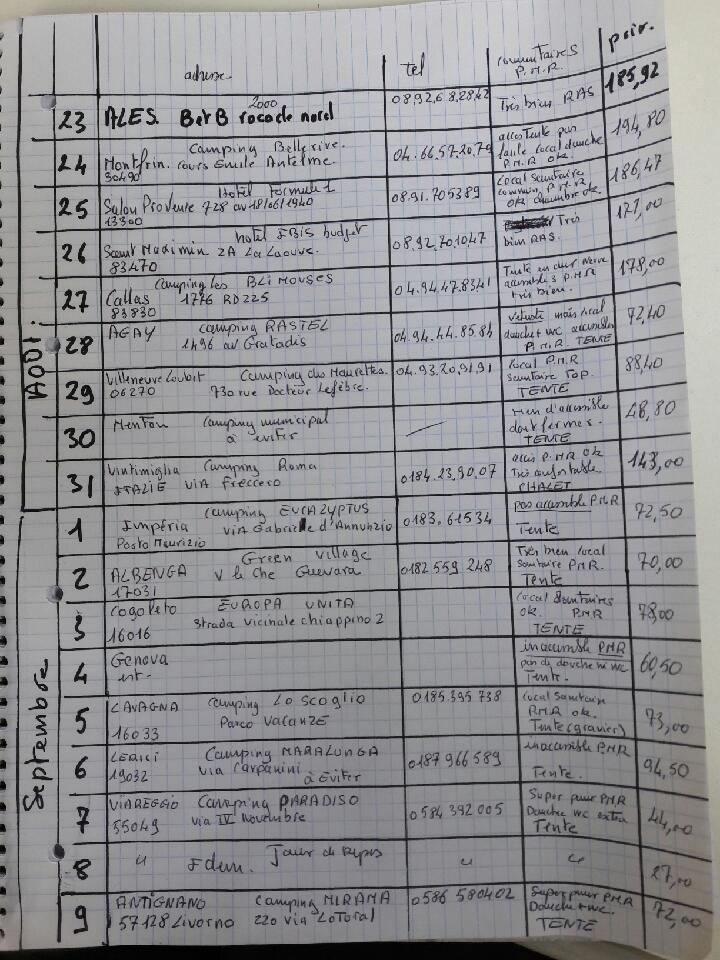 adresse tel commentaires P.M.R. prix.
AOUT.
2000
23 ALES. BetB rocade nord 0892.68.28.42 Très bien RAS 185,92
24 Camping Bellerive.
Montfrin. cours Emile Antelme. 04.66.57.20.79
30490
accès tente pas facile local douche P.M.R ok. 194,80
25 Hotel Formule 1
Salon Provence 728 av 18/06/1940 08.91.705389
13300
Local sanitaire commun P.M.R ok chambre ok. 186,47
26 hotel IBIS budget
Saint Maximin ZA La Laouve. 08.92.701047
83470
Très bien RAS. 177,00
27 Camping les BLIMOUSES
Callas 1776 RD225 04.94.47.83.41
83830
accessibles P.M.R très bien. 178,00
28 AGAY camping RASTEL
1496 av Gratadis 04.94.44.85.84
vetuste mais local douche + WC accessibles P.M.R. TENTE 72,40
29 Villeneuve Loubet Camping des Maurettes. 04.93.20.91.91
06270 730 rue Docteur Lefèbre.
local P.M.R sanitaire Top. TENTE 88,40
30 Menton camping municipal
à eviter
rien d'accessible TENTE 48,80
31 Vintimiglia Camping Roma
ITALIE viA Freccero 0184.23.90.07
accès P.M.R ok Très confortable CHALET 143,00
Septembre
1 camping EUCALYPTUS
Impéria viA Gabrielle d'Annunzio 0183.61534
Porto Maurizio
pas accessible PMR Tente 72,50
2 Green Village
ALBENGA V le Che Guevara 0182 559 248
17031
Très bien local sanitaire P.M.R. Tente 70,00
3 Cogoleto EUROPA UNITA
16016 strada vicinale chiappino 2
local sanitaires ok. P.M.R TENTE 78,00
4 Genova
est.
inaccessible PMR pas de douche ni wc Tente. 60,50
5 LAVAGNA camping Lo SCOGLIO 0185.395 738
16033 Parco VacanzE
local sanitaire P.M.R ok. Tente (gravier) 73,00
6 LERICI Camping MARALUNGA 0187 966 589
19032 via Carpanini à Eviter
inaccessible PMR Tente. 94,50
7 ViAREGGIO Camping PARADISO
55049 via IV Novembre 0584 392 005
Super pour PMR Douche wc extra Tente 44,00
8 " Idem. Jour de Repos " " 27,00
9 ANTIGNANO camping MIRAMA 0586 580402
57128 Livorno 220 via LoToral
Super pour PMR Douche + wc. TENTE 72,00